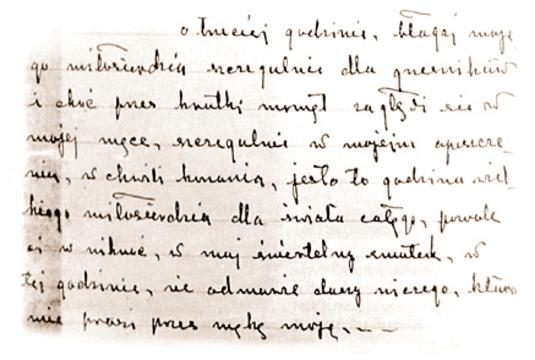 o trzeciej godzinie, błagaj moje
go miłosierdzia szczególnie dla grzeszników
i choć przez krutki moment zagłębi się w
mojej męce, szczególnie w mojem opuszcze-
niu, w chwili konania, jest to godzina wiel-
kiego miłosierdzia dla świata całego, pozwolę
ci w niknąć, w mój śmiertelny smutek, w
tej godzinie, nie odmówię duszy niczego, która
mnie prosi przez mękę moję, - -